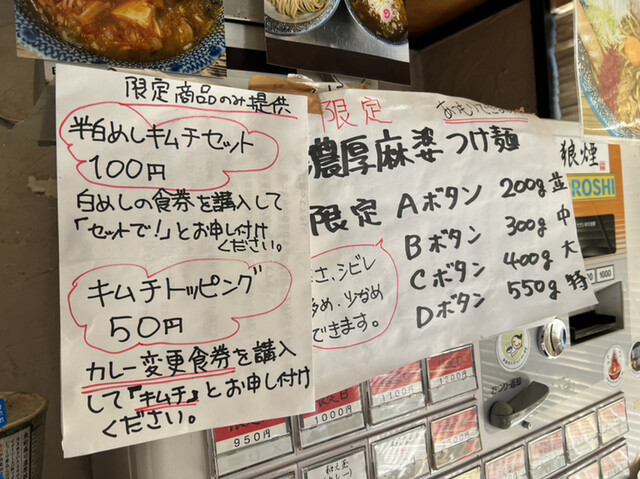 限定商品のみ提供
半白めしキムチセット
100円
白めしの食券を購入して
「セットで!」とお申し付け
ください。
キムチトッピング
50円
カレー変更食券を購入
して『キムチ』とお申し付け
ください。
限定
濃厚麻婆つけ麺
限定 Aボタン 200g 並
Bボタン 300g 中
Cボタン 400g 大
Dボタン 550g 特
さ、シビレ
多め・少なめ
できます。
狼煙
ROSHI
1000
950円
1000円
1100円
1200円